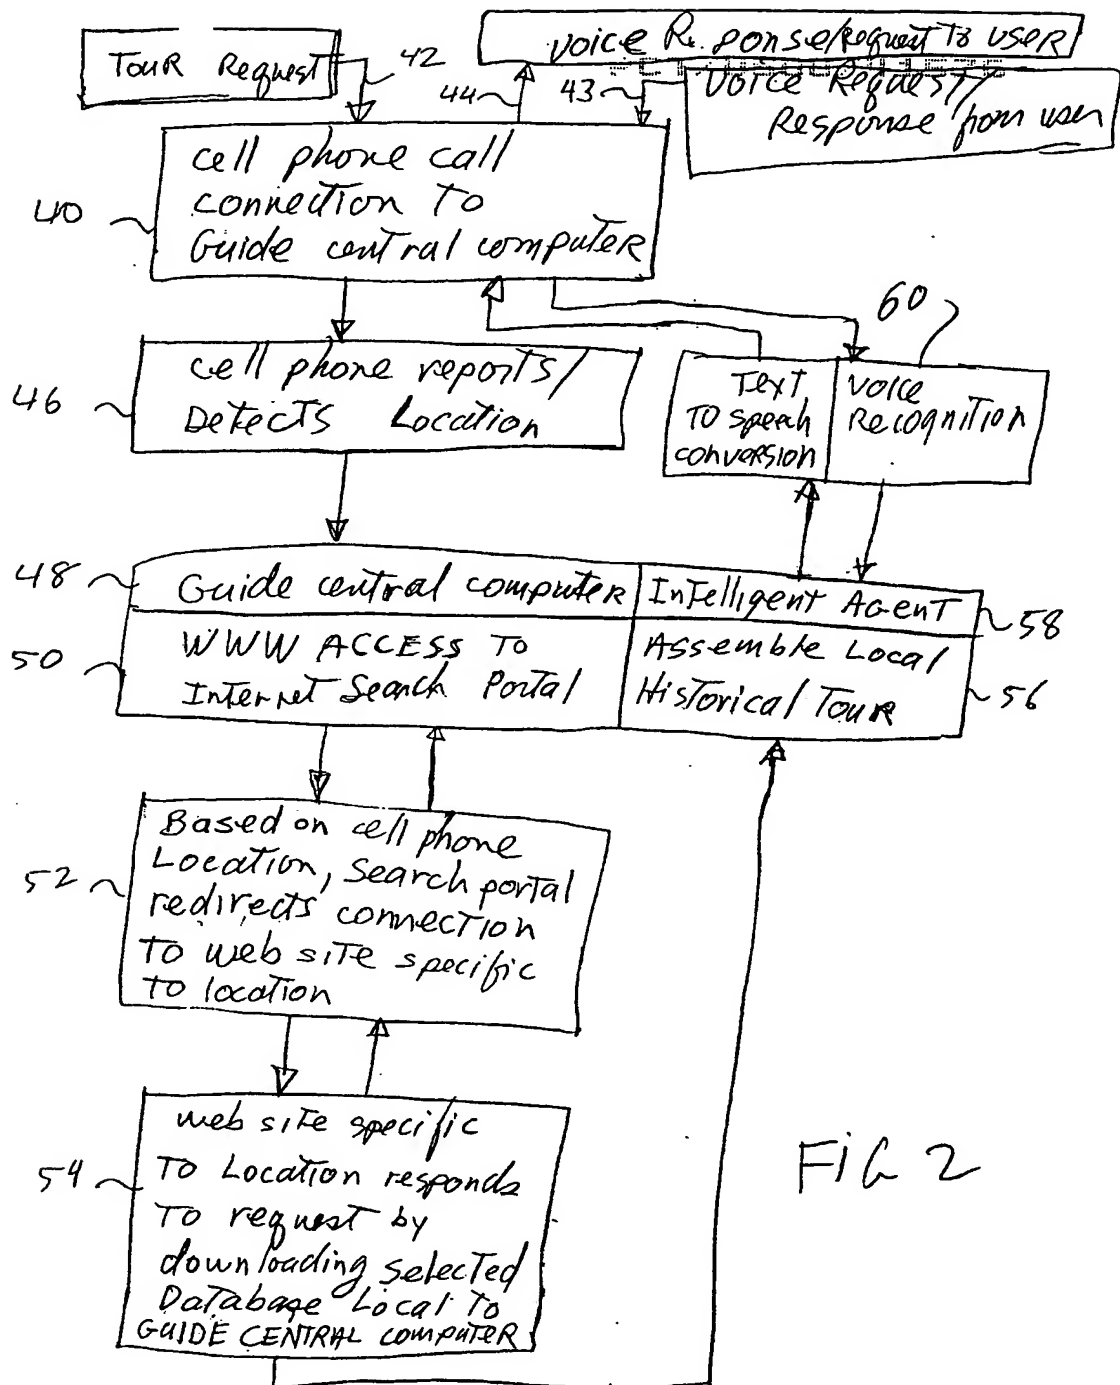 Tour Request
42
voice Response/Request to user
44
43
Voice Request/
Response from user
40
cell phone call
connection to
Guide central computer
60
46
cell phone reports/
Detects Location
Text
to speech
conversion
Voice
Recognition
48
Guide central computer
Intelligent Agent
58
50
WWW ACCESS To
Internet Search Portal
Assemble Local
Historical Tour
56
52
Based on cell phone
Location, Search portal
redirects connection
to web site specific
to location
54
web site specific
To Location responds
To request by
downloading selected
Database Local to
GUIDE CENTRAL computer
FIG 2